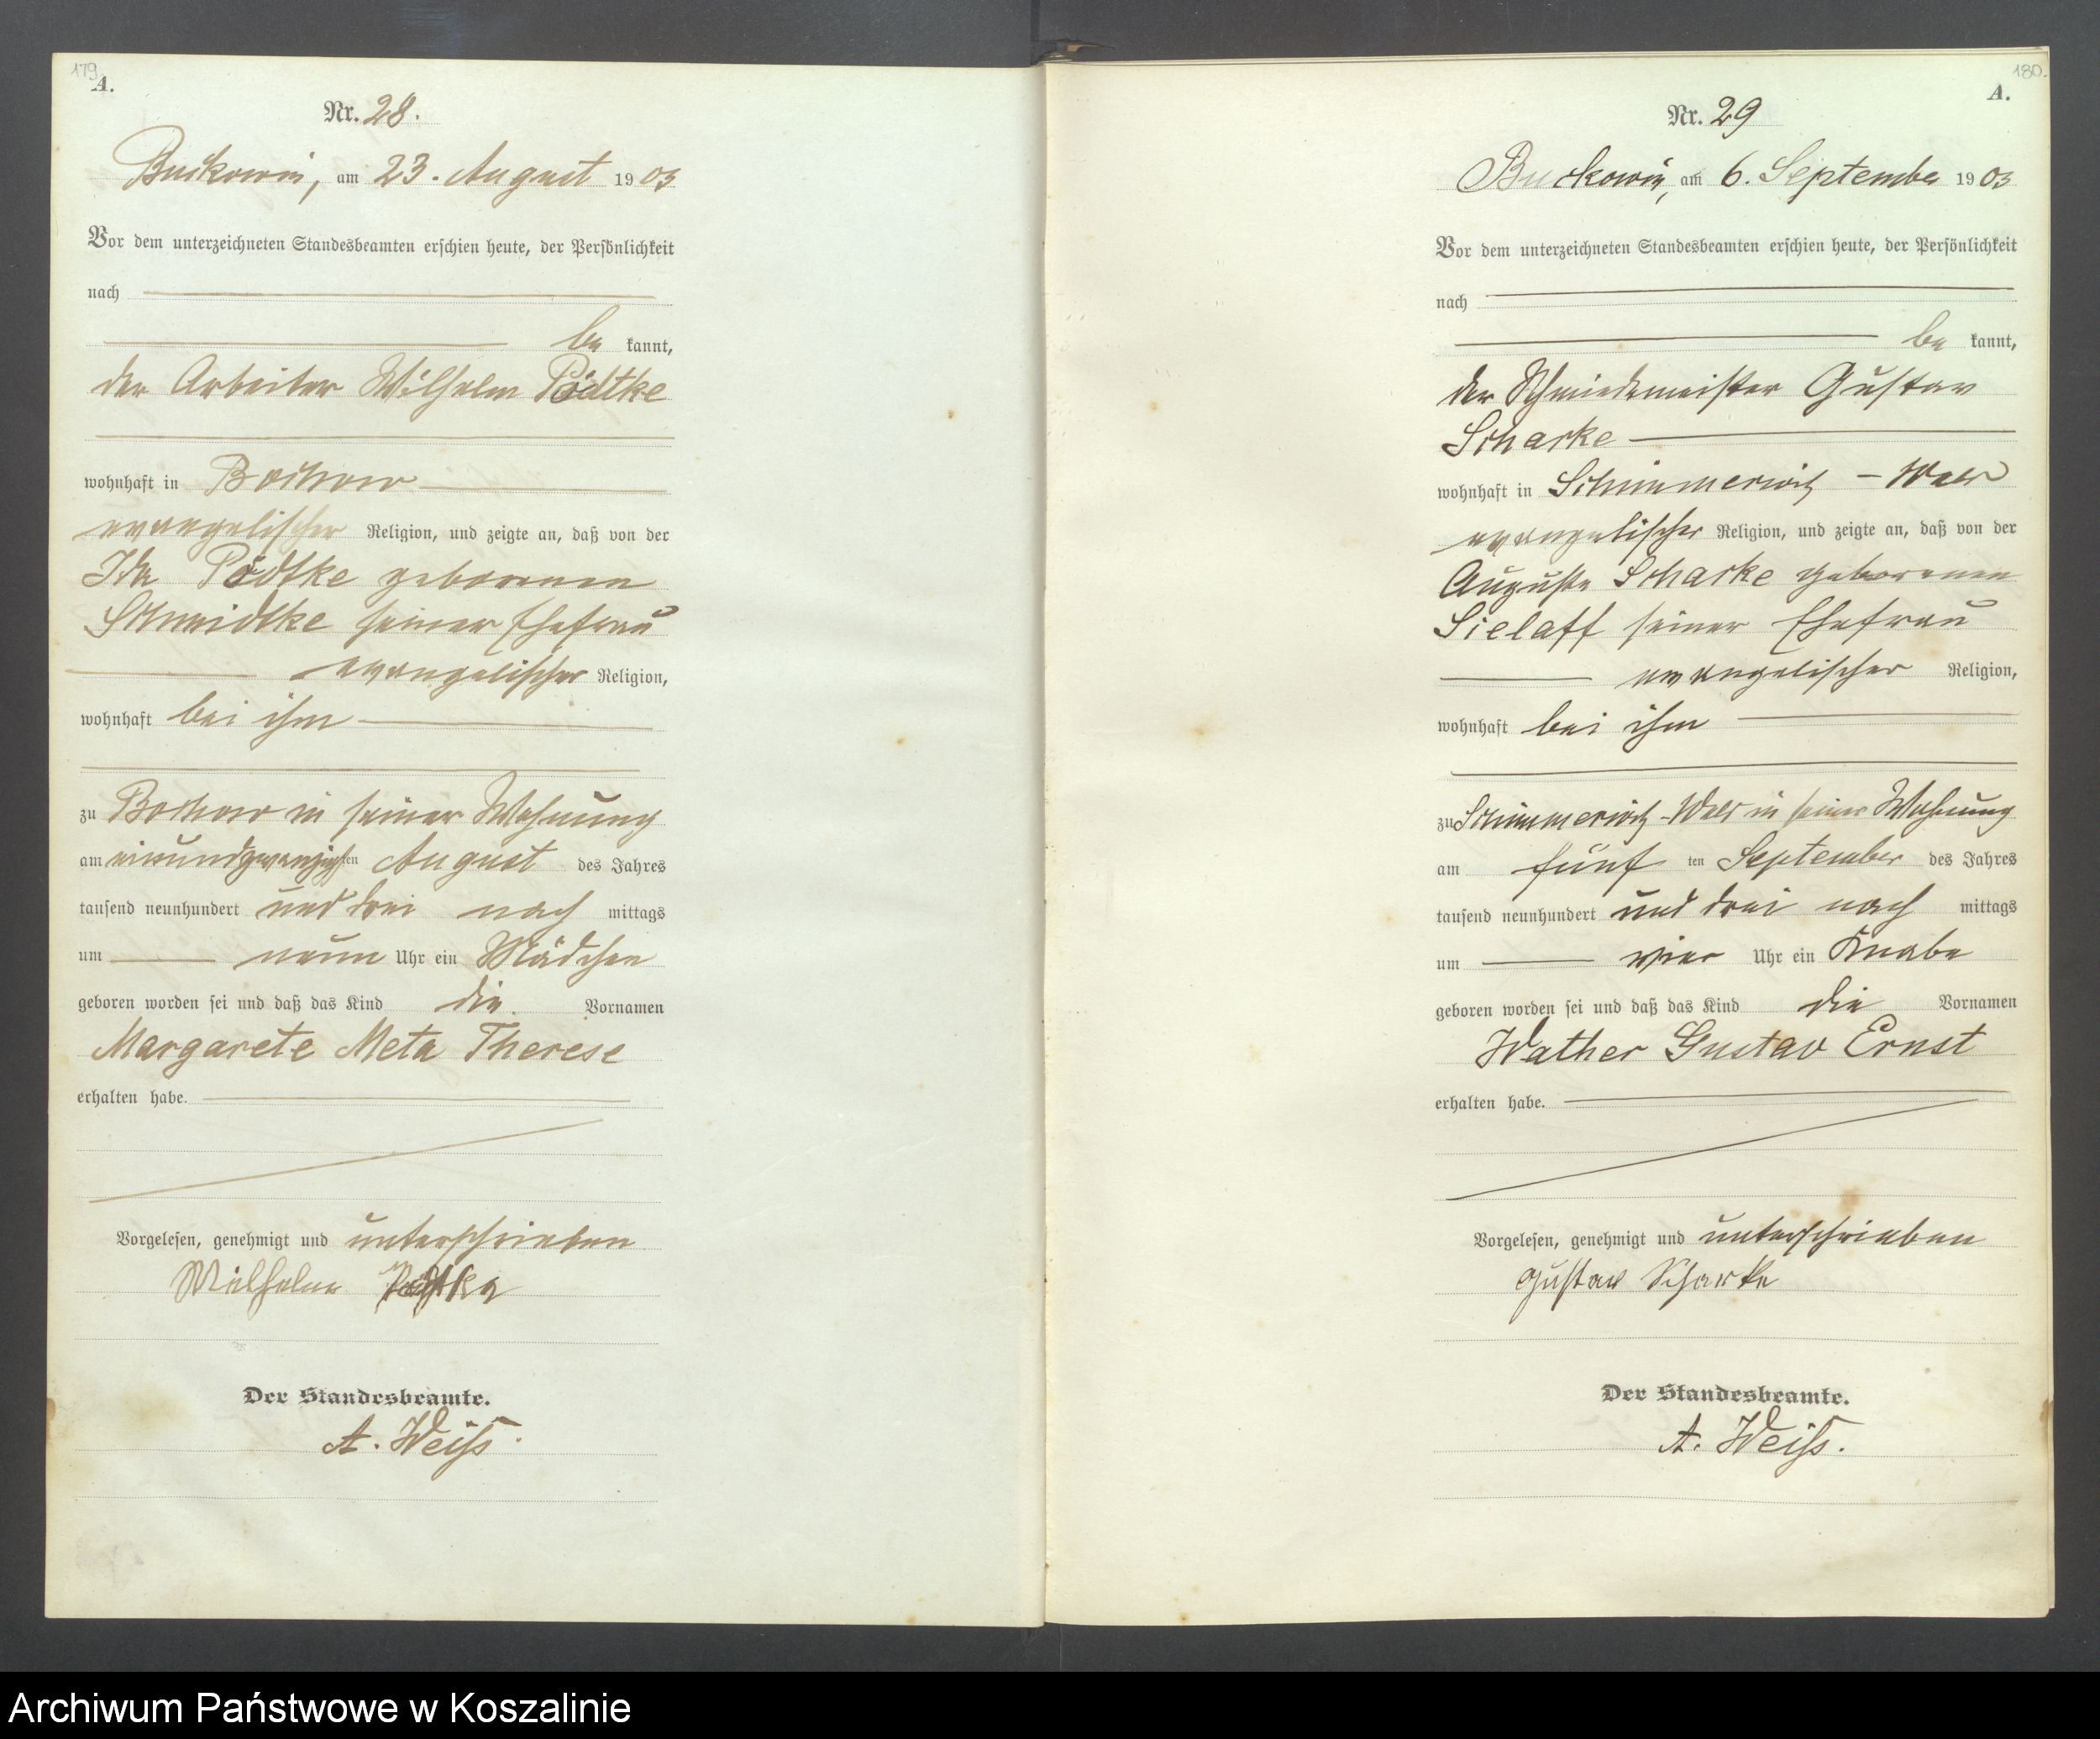 179
A.
Nr. 28.
Buckowin, am 23. August 1903
Vor dem unterzeichneten Standesbeamten erschien heute, der Persönlichkeit
nach
be kannt,
der Arbeiter Wilhelm Pödtke
wohnhaft in Bochow
evangelischer Religion, und zeigte an, daß von der
Ida Pödtke geborenen
Schmidtke seiner Ehefrau
evangelischer Religion,
wohnhaft bei ihm
zu Bochow in seiner Wohnung
am einundzwanzigsten August des Jahres
tausend neunhundert und drei nach mittags
um neun Uhr ein Mädchen
geboren worden sei und daß das Kind die Vornamen
Margarete Meta Therese
erhalten habe.
Vorgelesen, genehmigt und unterschrieben
Wilhelm
Der Standesbeamte.
A. Weiß.
180.
A.
Nr. 29
Buckowin, am 6. September 1903
Vor dem unterzeichneten Standesbeamten erschien heute, der Persönlichkeit
nach
be kannt,
der Schmiedemeister Gustav
Scharke
wohnhaft in Schimmerwitz - Wals
evangelischer Religion, und zeigte an, daß von der
Auguste Scharke geborenen
Sielaff seiner Ehefrau
evangelischer Religion,
wohnhaft bei ihm
zu Schimmerwitz - Wals in seiner Wohnung
am fünf ten September des Jahres
tausend neunhundert und drei nach mittags
um vier Uhr ein Knabe
geboren worden sei und daß das Kind die Vornamen
Wather Gustav Ernst
erhalten habe.
Vorgelesen, genehmigt und unterschrieben
Gustav Scharke
Der Standesbeamte.
A. Weiß.
Archiwum Państwowe w Koszalinie